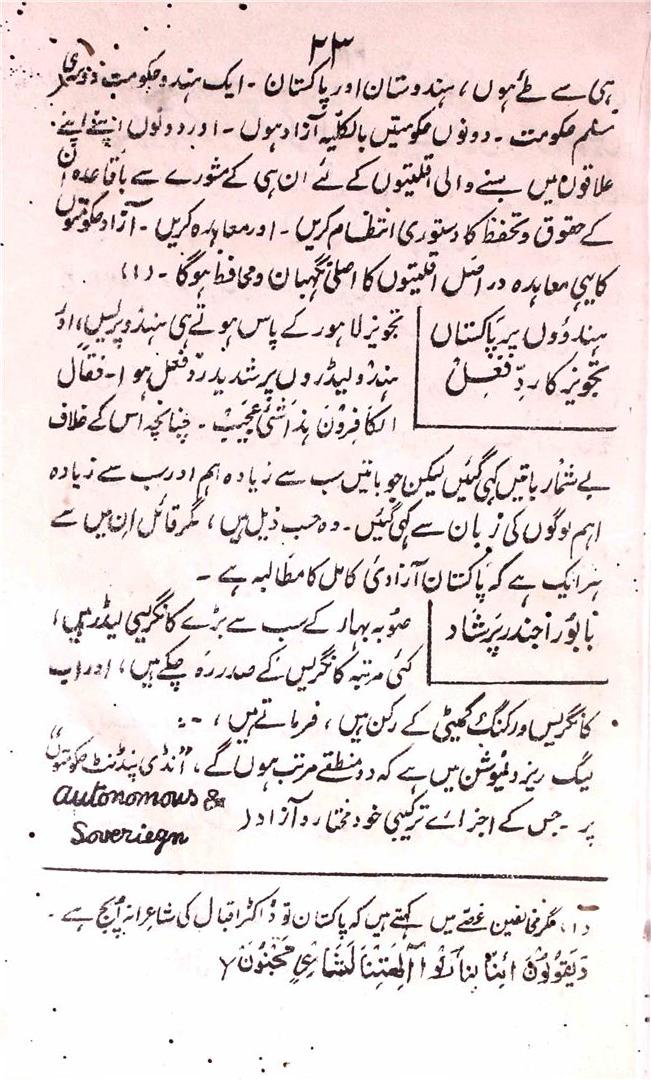 ۲۳
ہی سے طے ہوں، ہندوستان اور پاکستان ۔ ایک ہندو حکومت دوسری
مسلم حکومت ۔ دونوں حکومتیں بالکلیہ آزاد ہوں ۔ اور دونوں اپنے اپنے
علاقوں میں بسنے والی اقلیتوں کے لئے ان ہی کے مشورے سے باقاعدہ ان
کے حقوق و تحفظ کا دستوری انتظام کریں ۔ اور معاہدہ کریں ۔ آزاد حکومتوں
کا یہی معاہدہ دراصل اقلیتوں کا اصلی نگہبان و محافظ ہوگا ۔ (۱)
ہندوؤں پر پاکستان
تجویز کا ردِّ فعل
تجویز لاہور کے پاس ہوتے ہی ہندو پریس، اور
ہندو لیڈروں پر شدید ردِّ فعل ہوا ۔ فقال
الکافرون ہذا شئی عجیب ۔ چنانچہ اس کے خلاف
بے شمار باتیں کہی گئیں لیکن جو باتیں سب سے زیادہ اہم اور سب سے زیادہ
اہم لوگوں کی زبان سے کہی گئیں ۔ وہ حسب ذیل ہیں، مگر قائل ان میں سے
ہر ایک ہے کہ پاکستان آزادیٔ کامل کا مطالبہ ہے ۔
بابو راجندر پرشاد
صوبہ بہار کے سب سے بڑے کانگریسی لیڈر ہیں،
کئی مرتبہ کانگریس کے صدر رہ چکے ہیں، اور اب
کانگریس ورکنگ کمیٹی کے رکن ہیں، فرماتے ہیں، ۔:
لیگ ریزولیوشن میں ہے کہ دو منطقے مرتب ہوں گے، "انڈی پنڈنٹ حکومتوں"
پر ۔ جس کے اجزائے ترکیبی خود مختار و آزاد (
Autonomous &
Soveriegn
(۱) مگر مخالفین غصے میں کہتے ہیں کہ پاکستان تو ڈاکٹر اقبال کی شاعرانہ اُپج ہے ۔
وَیَقُوْلُوْنَ اَئِنَّا لَتَارِکُوْا اٰلِهَتِنَا لِشَاعِرٍ مَّجْنُوْنٍ